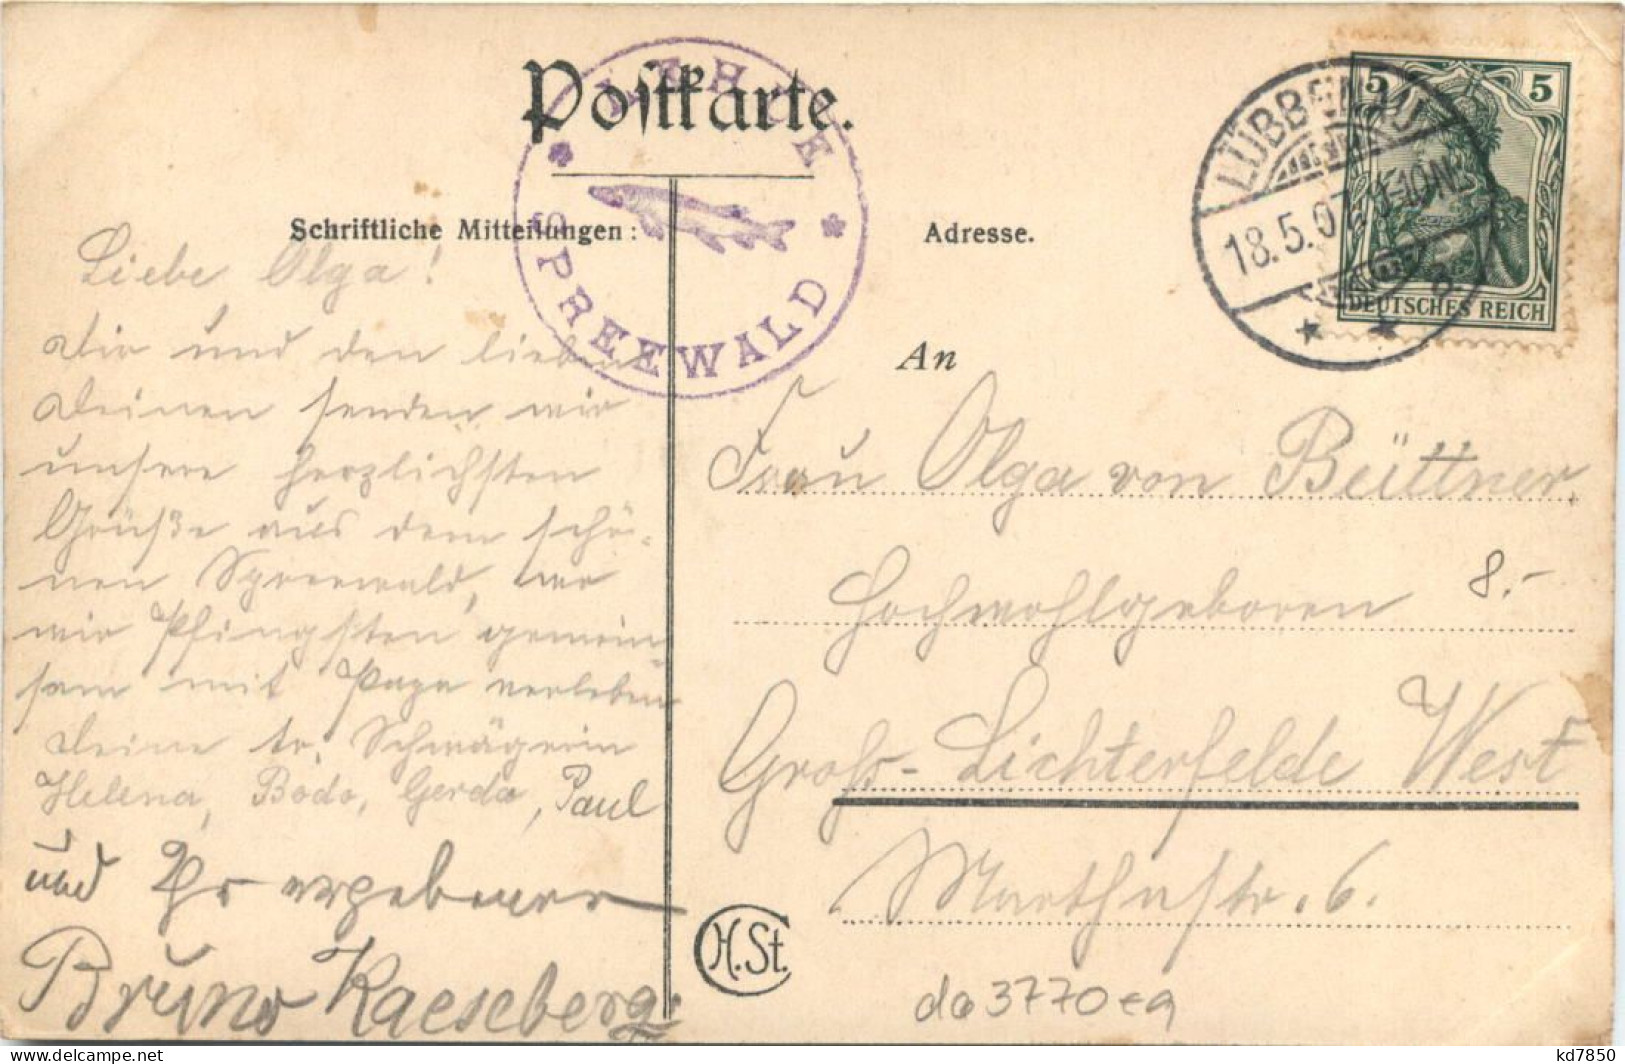 Postkarte.
LEHDE
SPREEWALD
LÜBBENAU
18.5.07
5
5
DEUTSCHES REICH
Schriftliche Mitteilungen:
Adresse.
Liebe Olga!
Dir und den lieben
Deinen senden wir
unsere herzlichsten
Grüße aus dem schö-
nen Spreewald, wo
wir Pfingsten gemein-
sam mit Papa verleben
Deine tr. Schwägerin
Helena, Bodo, Gerda, Paul
und Ihr ergebener
Bruno Kaeseberg.
An
Frau Olga von Büttner,
Hochwohlgeboren
8.-
Gross-Lichterfelde West
Marthastr. 6.
H.St.
da 3770 ea
www.delcampe.net
kd7850